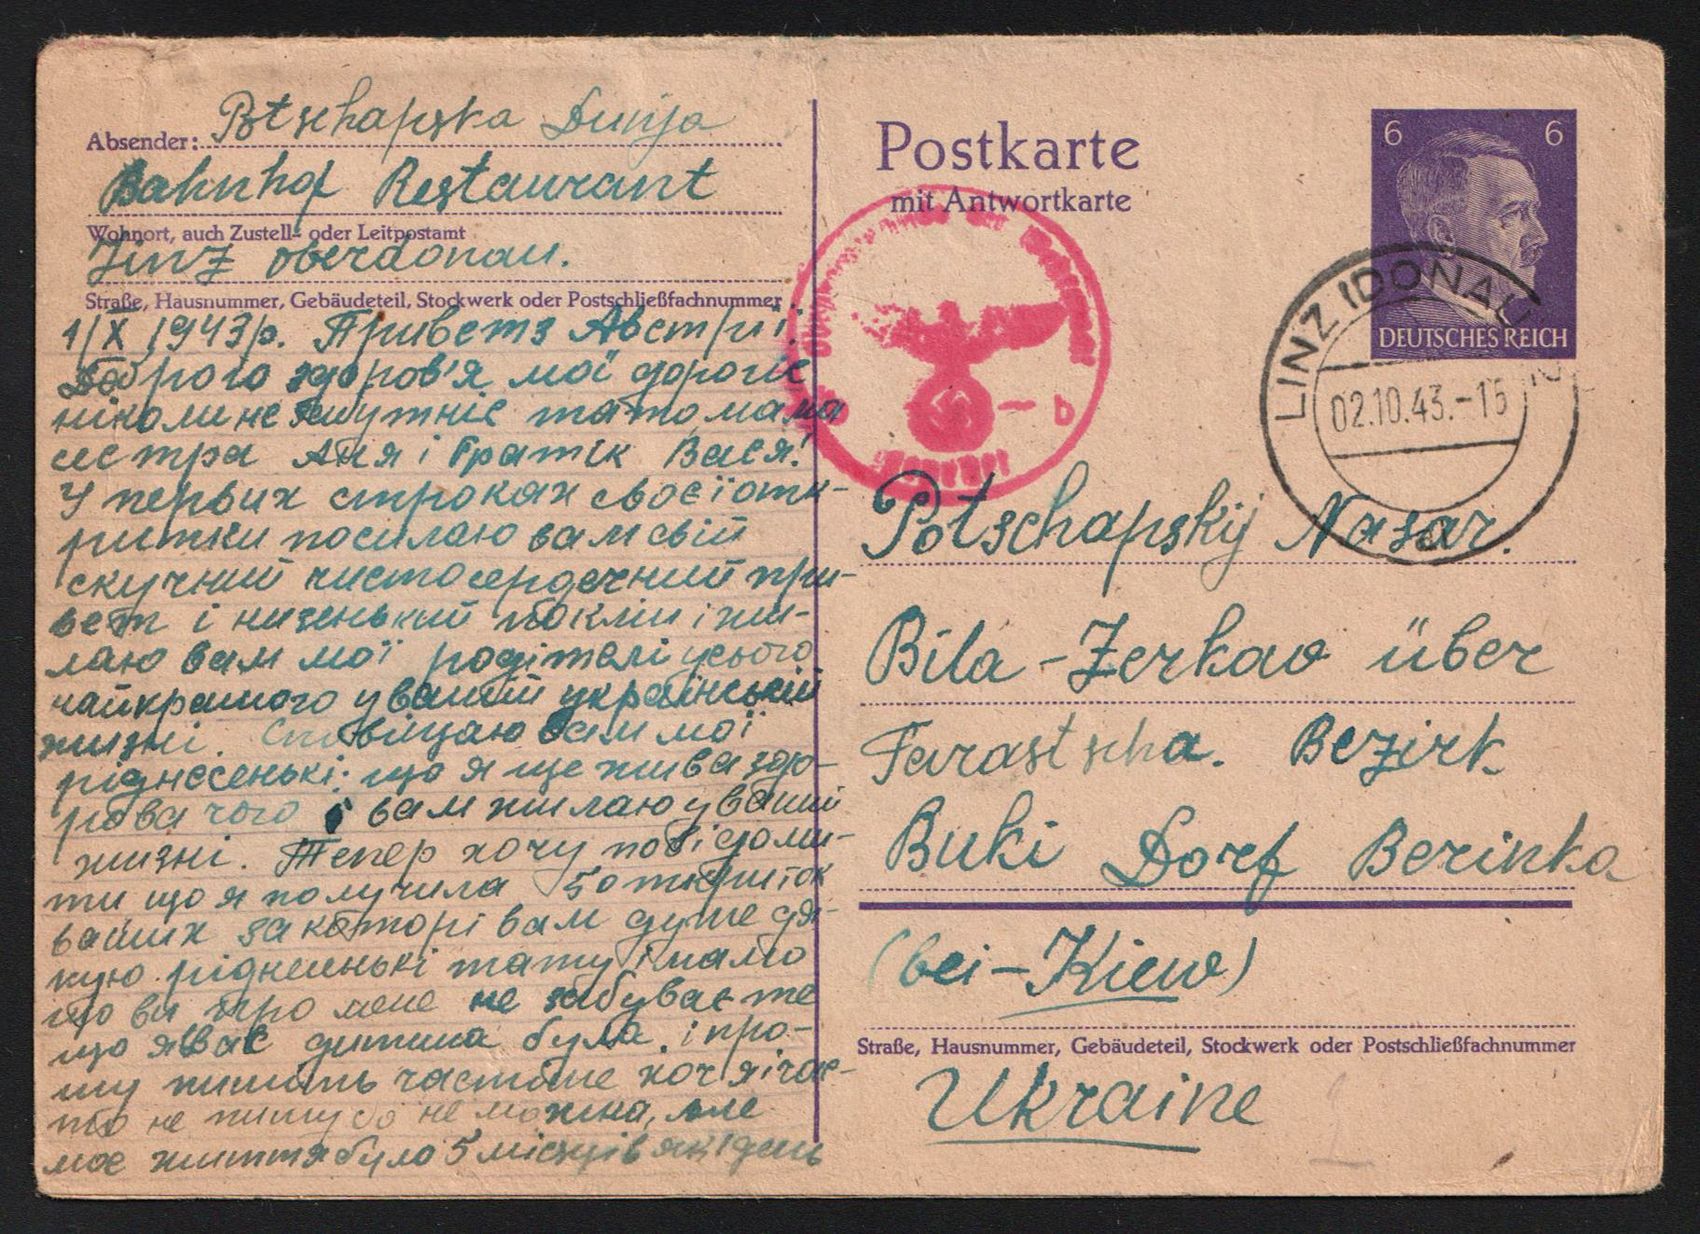 Absender: Potschapska Dunja
Bahnhof Restaurant
Wohnort, auch Zustell- oder Leitpostamt
Linz oberdonau.
Straße, Hausnummer, Gebäudeteil, Stockwerk oder Postschließfachnummer
1/X 1943р. Привет з Австрії.
Доброго здоров'я мої дорогіє
ніколи не
тато, мама
сестра Аня і братік Вася!
У первих строках своєї отк-
ритки посилаю вам свій
скучний чистосердечний при-
вет і низенький поклін і жи-
лаю вам мої родітелі усього
найкращого у вашій український
жизні. Сповіщаю вам мої
ріднесенькі: що я ще жива здо-
рова чого і вам жилаю у вашій
жизні. Тепер хочу повідоми-
ти що я получила 5 откриток
ваших за которі вам дуже дя-
кую ріднесенькі тату і мамо
що ви про мене не забуваєте
що я в вас дитина була. і про-
шу пишіть частіше хоч я
не пишу бо не можна, але
моє життя було 5 місяців як 1 день
Postkarte
mit Antwortkarte
6 6
DEUTSCHES REICH
LINZ (DONAU)
02.10.43.-15
b
Potschapskij Nasar.
Bila-Zerkow über
Tarastscha. Bezirk
Buki Dorf Berinka
(bei-Kiew)
Straße, Hausnummer, Gebäudeteil, Stockwerk oder Postschließfachnummer
Ukraine